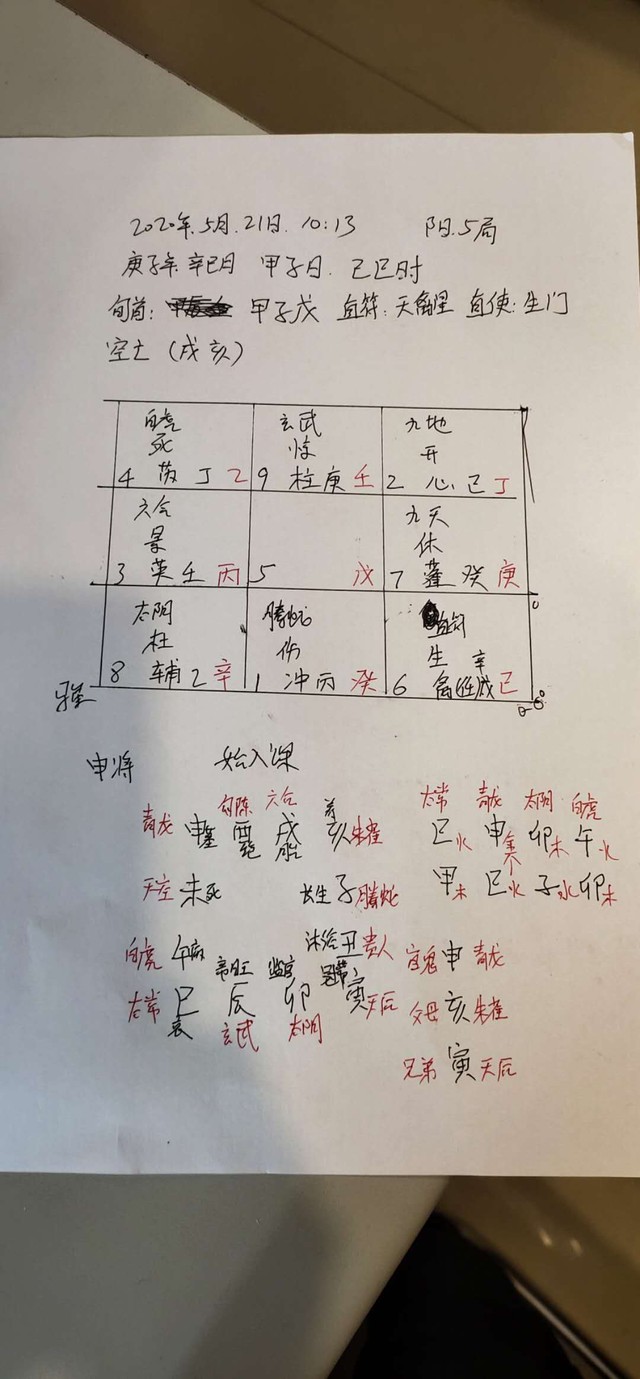 2020年.5月.21日.10:13 阳.5局
庚子年.辛巳月 甲子日.己巳时
旬首: 甲子戊 直符:天禽星 直使:生门
空亡(戌亥)
白虎 玄武 九地
死 惊 开
4 芮丁乙 9 柱庚壬 2 心己丁
六合 九天
景 休
3 英壬丙 5 戊 7 蓬癸庚
太阴 腾蛇 直符
杜 伤 生 辛
8 辅乙辛 1 冲丙癸 6 禽任戊己
申将 始入课
勾陈 六合 养 太常 青龙 太阴 白虎
青龙 申 酉绝 戌胎 亥朱雀 巳火 申金 卯木 午火
天空 未死 长生子腾蛇 甲木 巳火 子水 卯木
白虎 午病 帝旺 临官 沐浴丑贵人 官鬼 申 青龙
太常 巳衰 辰 卯 冠带寅天后 父母 亥 朱雀
玄武 太阴
兄弟 寅 天后